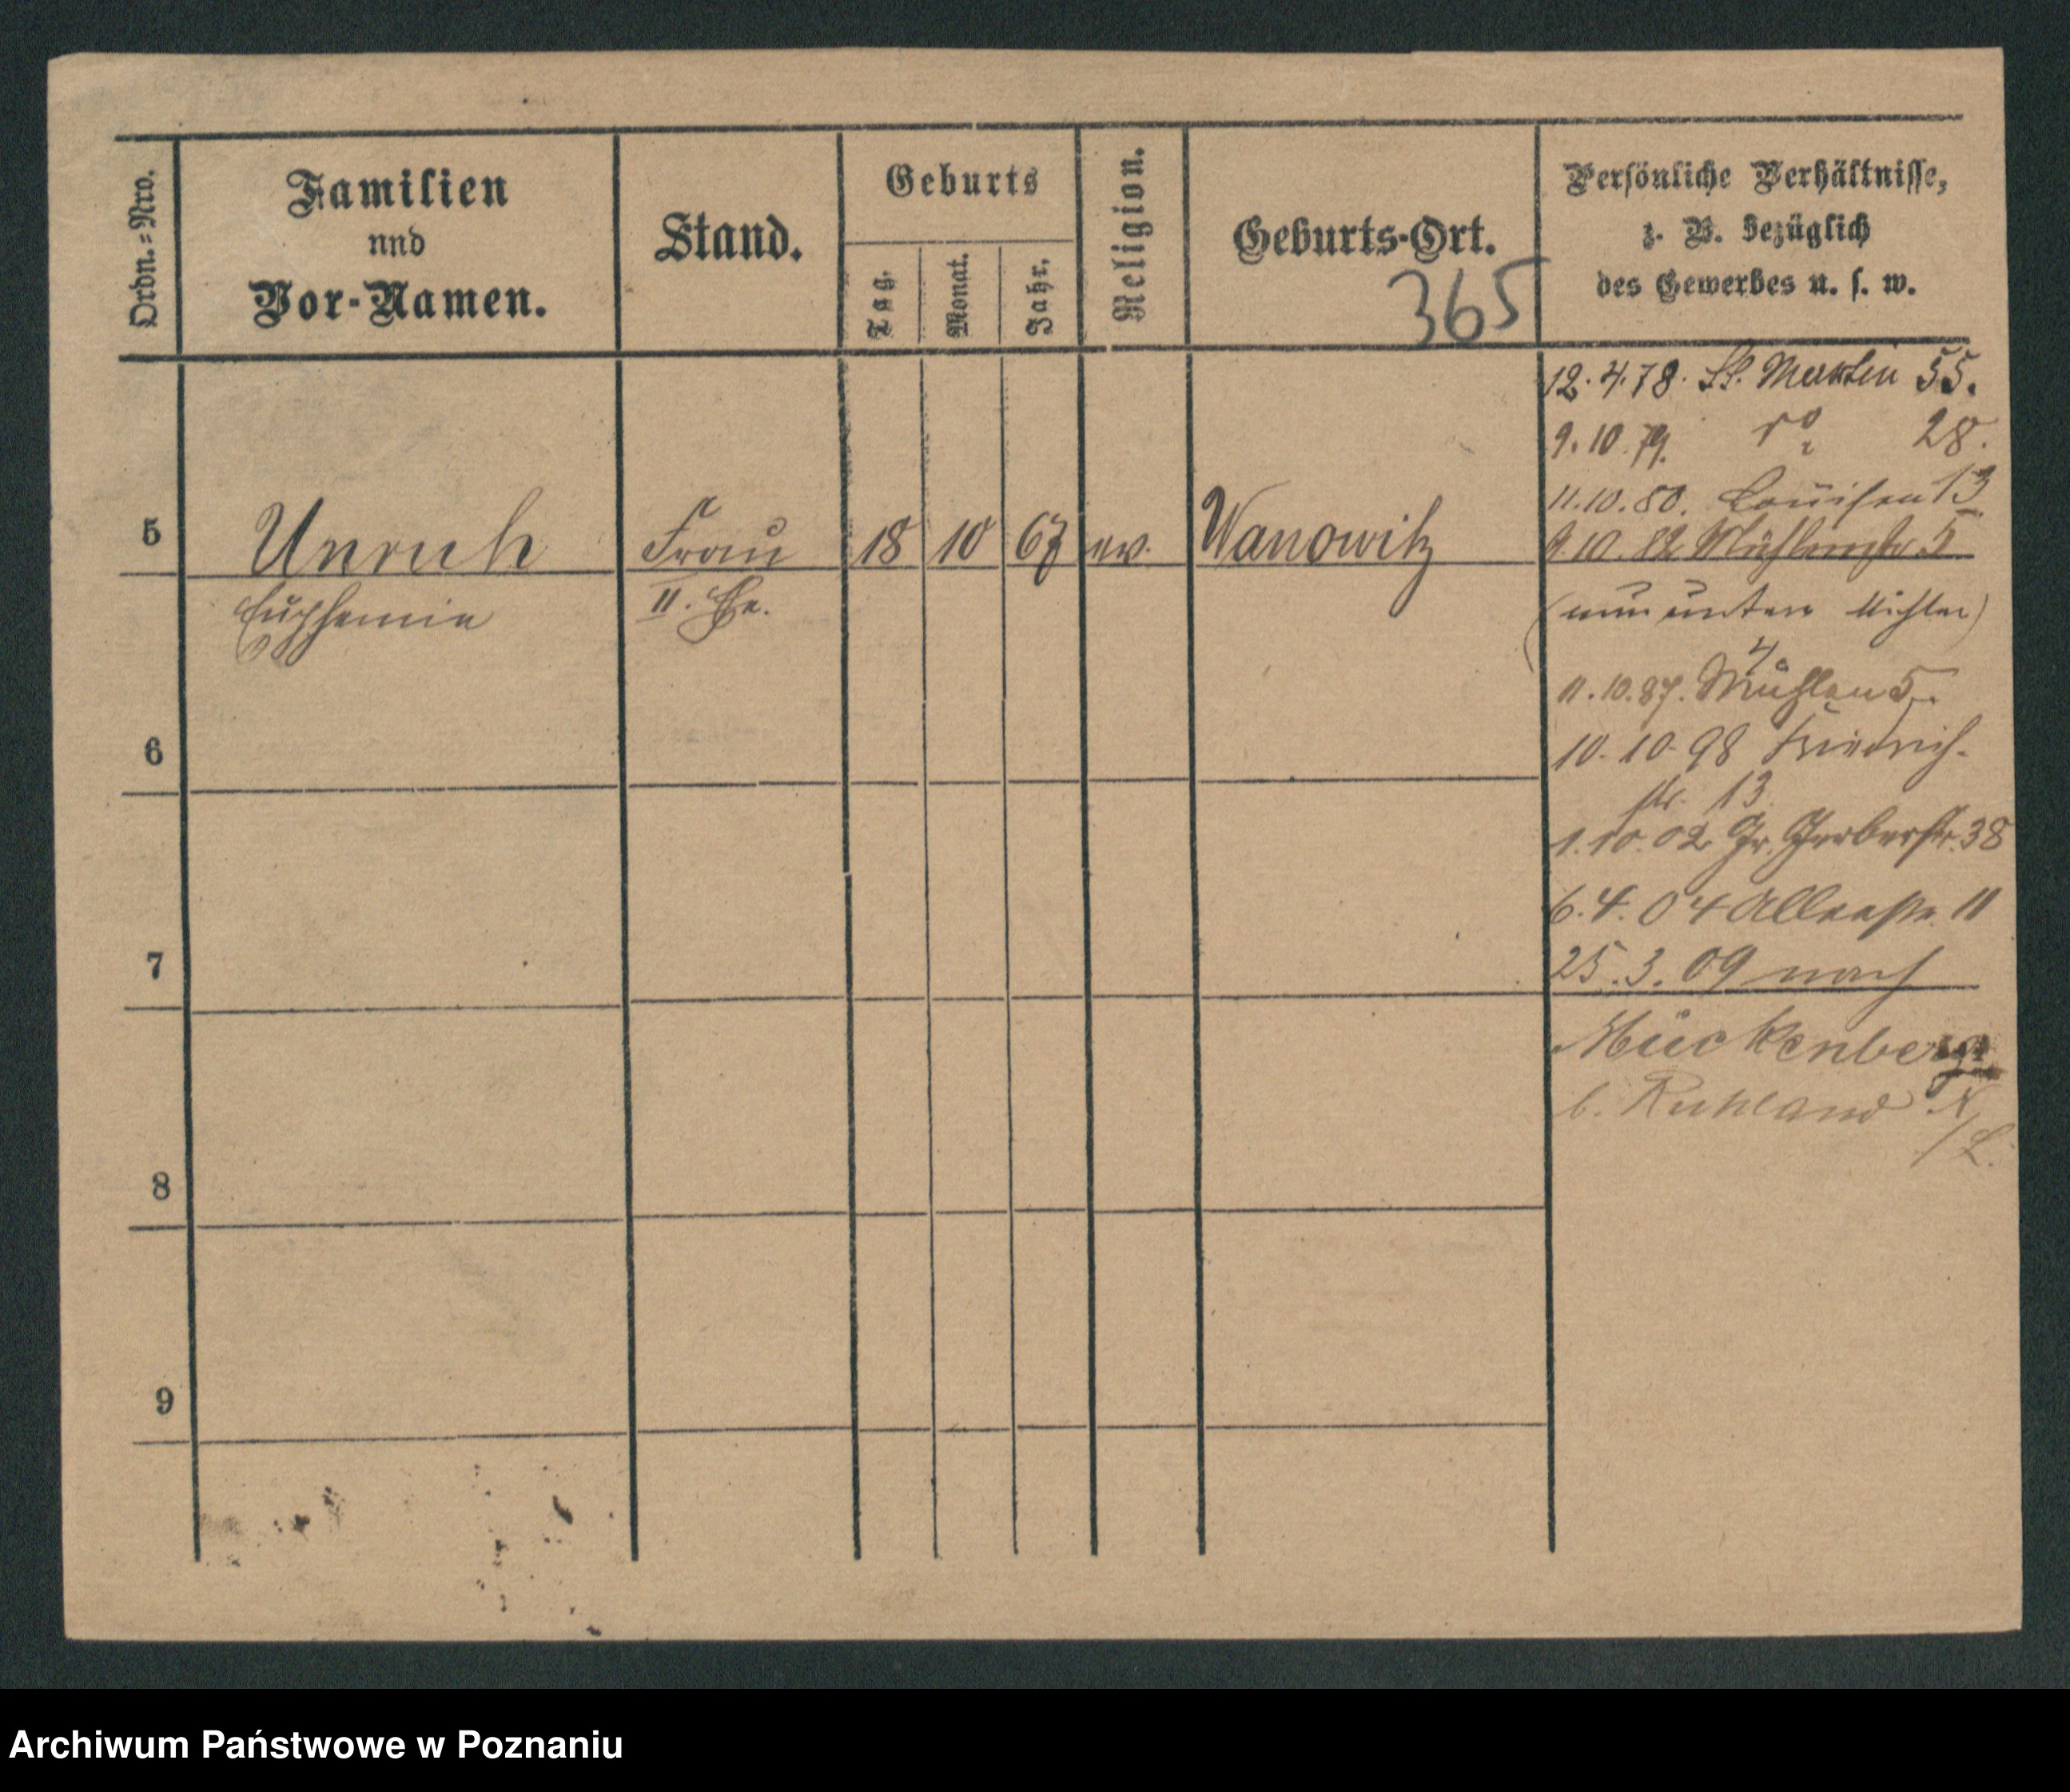 Ordn.=Nro.
Familien
und
Vor-Namen.
Stand.
Geburts
Tag.
Monat.
Jahr.
Religion.
Geburts-Ort.
365
Persönliche Verhältnisse,
z. B. bezüglich
des Gewerbes u. s. w.
12.4.78. St. Martin 55.
9.10.79. do 28.
11.10.80. Louisen 13
5 Unruh Frau 18 10 67 ev. Wanowitz 9.10.82 Mühlenstr. 5
Euphemia II. Ehe.
(nun unter)
11.10.87. Mühlen 5.
6
10.10.98 Friedrich-
str. 13
1.10.02 Gr. Gerberstr. 38
6.4.04 11
7
25.3.09 nach
Mückenberg
b. Ruhland N/L.
8
9
Archiwum Państwowe w Poznaniu